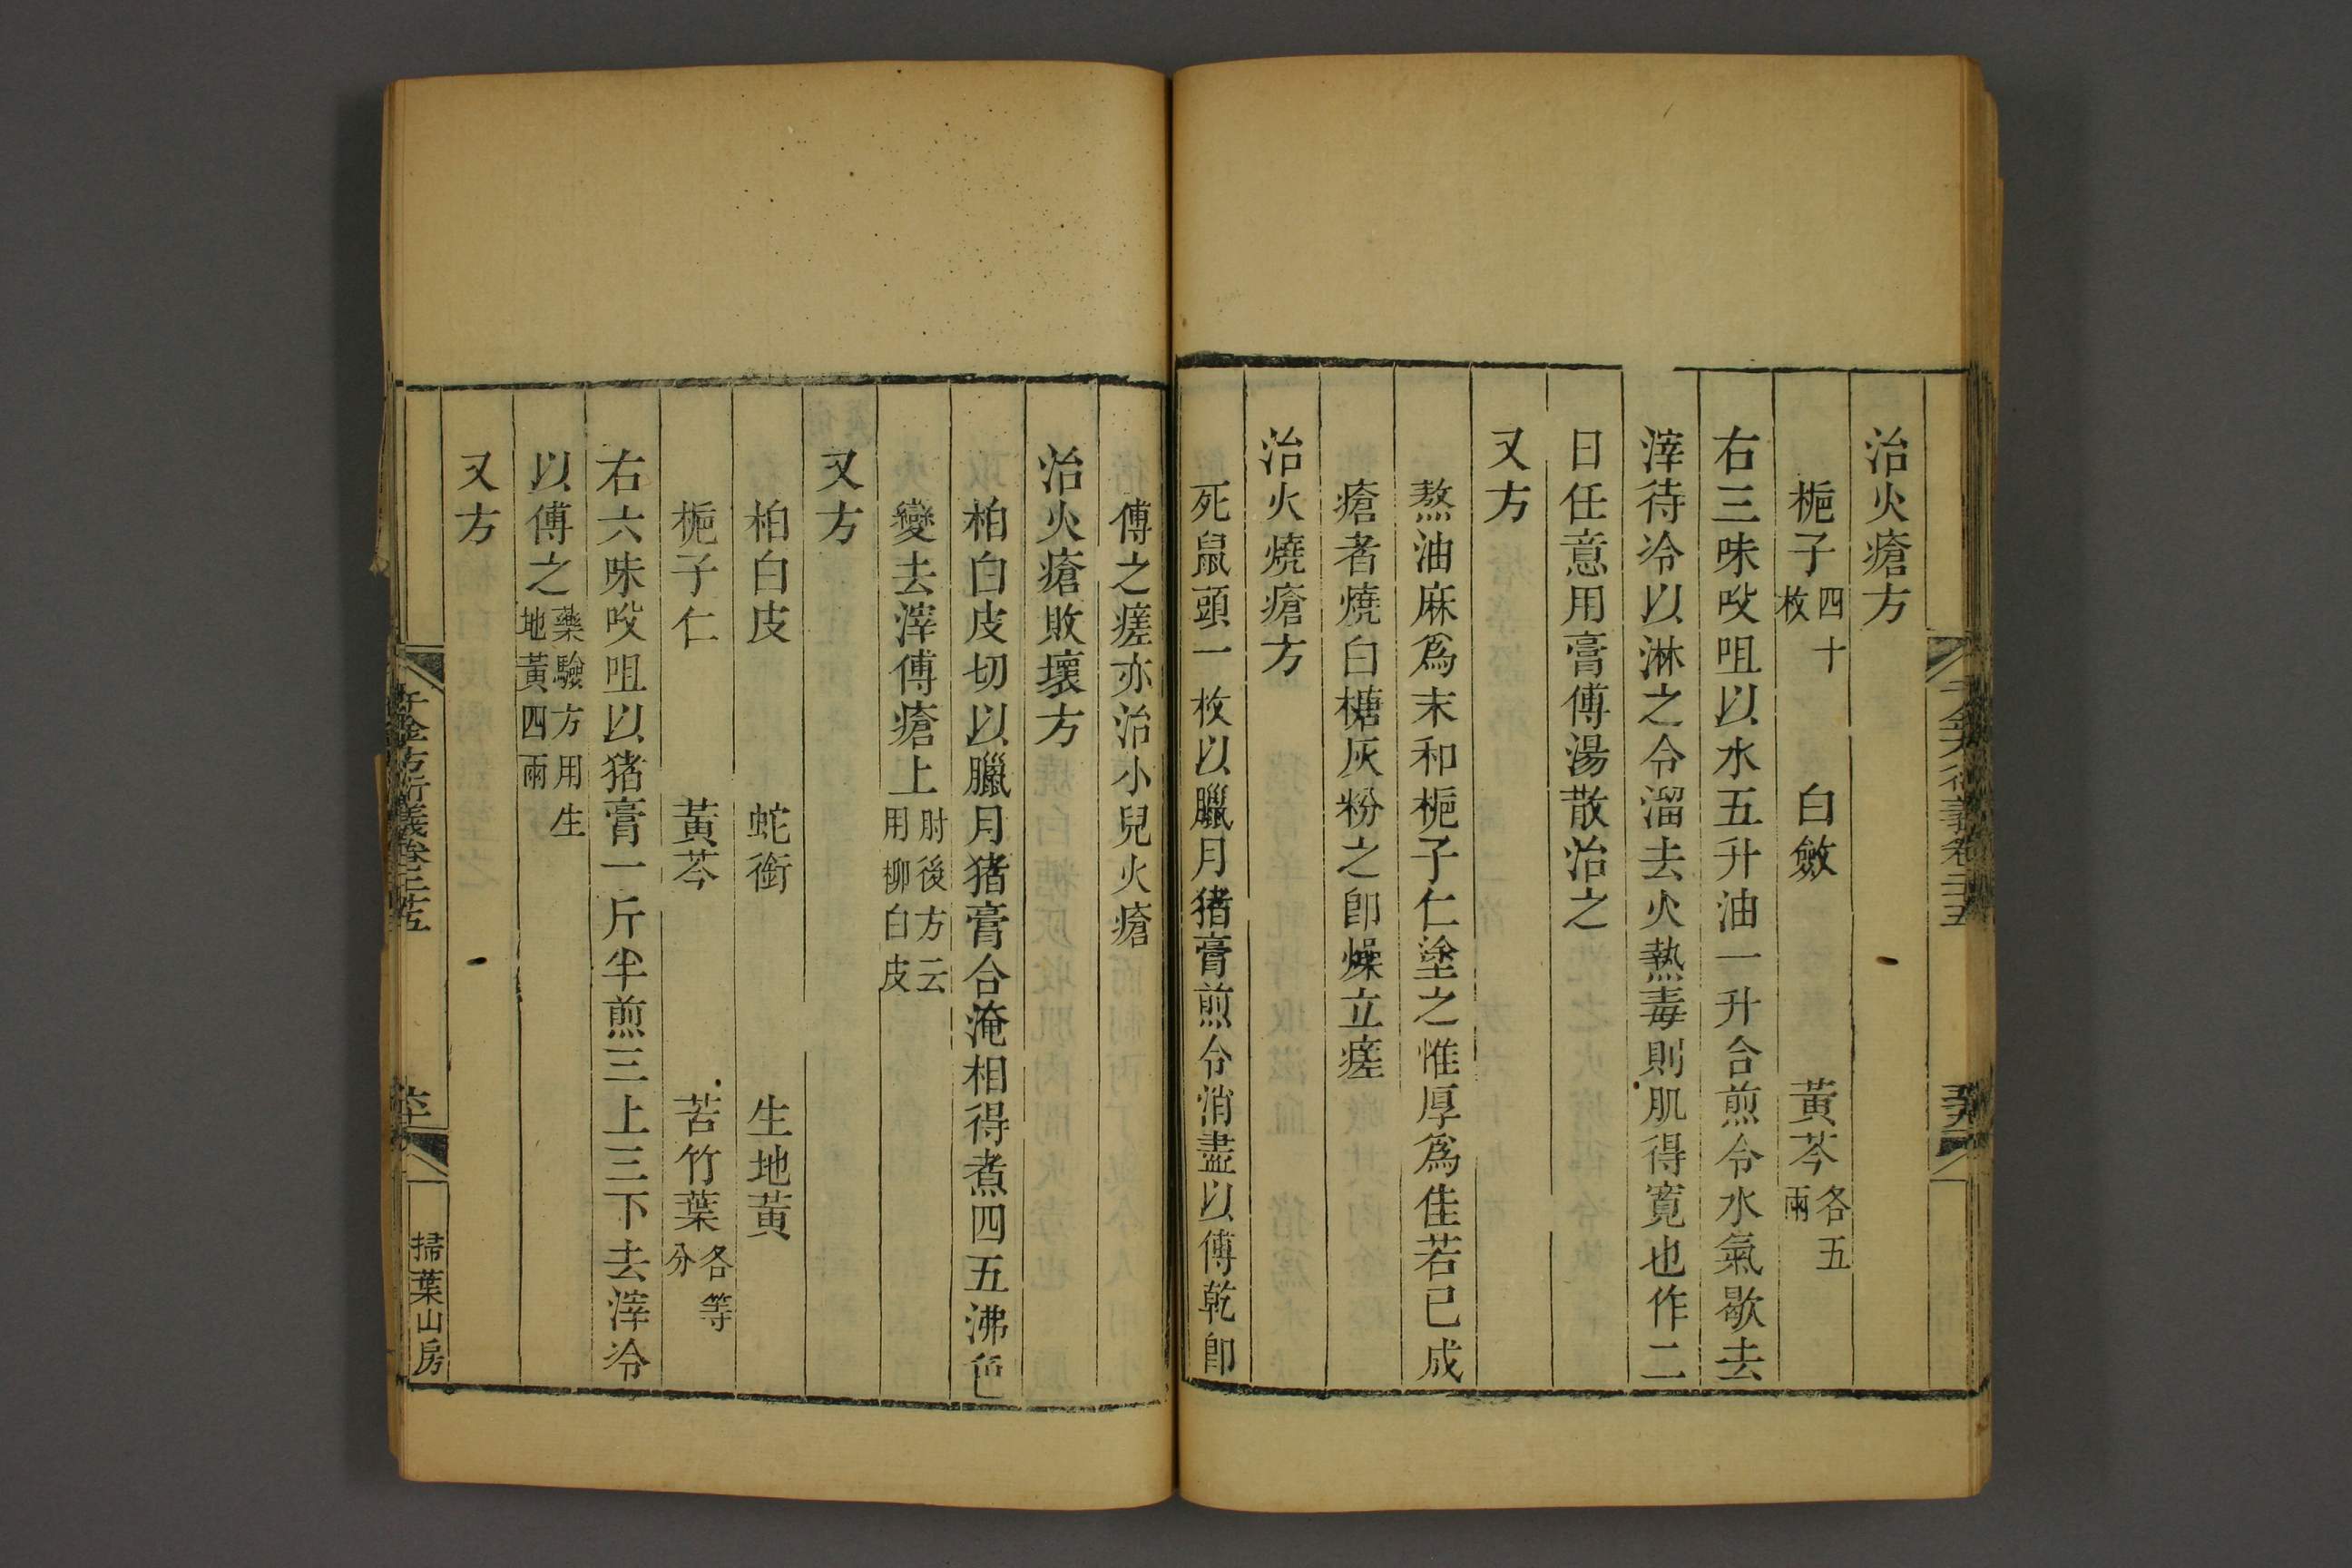 治火瘡方
梔子四十枚 白斂 黃芩各五兩
右三味㕮咀以水五升油一升合煎令水氣歇去
滓待冷以淋之令溜去火熱毒則肌得寬也作二
日任意用膏傅湯散治之
又方
熬油麻為末和梔子仁塗之惟厚為佳若已成
瘡者燒白糖灰粉之卽燥立瘥
治火燒瘡方
死鼠頭一枚以臘月猪膏煎令消盡以傅乾卽
傅之瘥亦治小兒火瘡
治火瘡敗壞方
柏白皮切以臘月猪膏合淹相得煮四五沸色
變去滓傅瘡上肘後方云用柳白皮
又方
柏白皮 蛇銜 生地黃
梔子仁 黃芩 苦竹葉各等分
右六味㕮咀以猪膏一斤半煎三上三下去滓冷
以傅之藥驗方用生地黃四兩
又方
千金方衍義卷二十五
掃葉山房